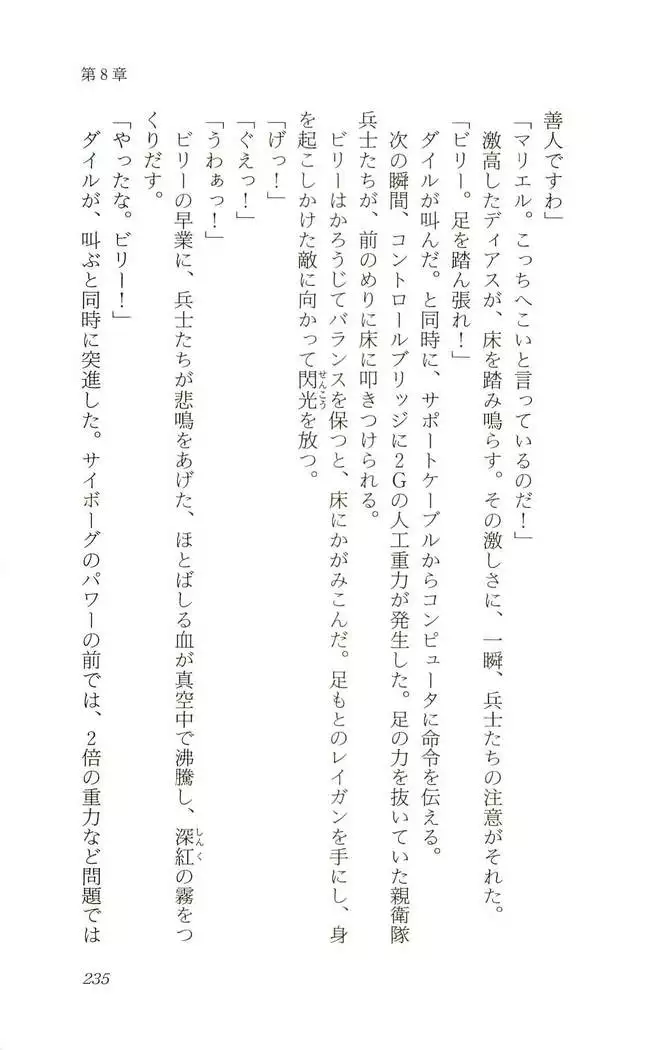 第8章
善人ですわ」
「マリエル。こっちへこいと言っているのだ！」
激高したディアスが、床を踏み鳴らす。その激しさに、一瞬、兵士たちの注意がそれた。
「ビリー。足を踏ん張れ！」
ダイルが叫んだ。と同時に、サポートケーブルからコンピュータに命令を伝える。
次の瞬間、コントロールブリッジに2Gの人工重力が発生した。足の力を抜いていた親衛隊
兵士たちが、前のめりに床に叩きつけられる。
ビリーはかろうじてバランスを保つと、床にかがみこんだ。足もとのレイガンを手にし、身
を起こしかけた敵に向かって閃光を放つ。
せんこう
「げっ！」
「ぐえっ！」
「うわぁっ！」
ビリーの早業に、兵士たちが悲鳴をあげた、ほとばしる血が真空中で沸騰し、深紅の霧をつ
しんく
くりだす。
「やったな。ビリー！」
ダイルが、叫ぶと同時に突進した。サイボーグのパワーの前では、2倍の重力など問題では
235